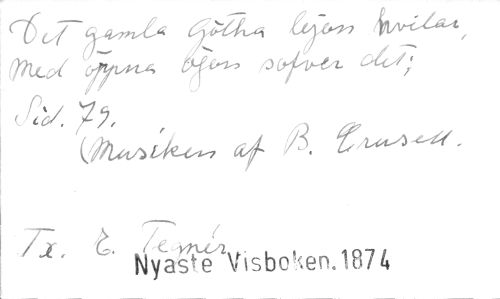 Det gamla Götha lejon hvilar,
med öppna ögon sofver det;
Sid. 79.
(Musiken af B. Crusell.
Tx. E. Tegnér
Nyaste Visboken. 1874